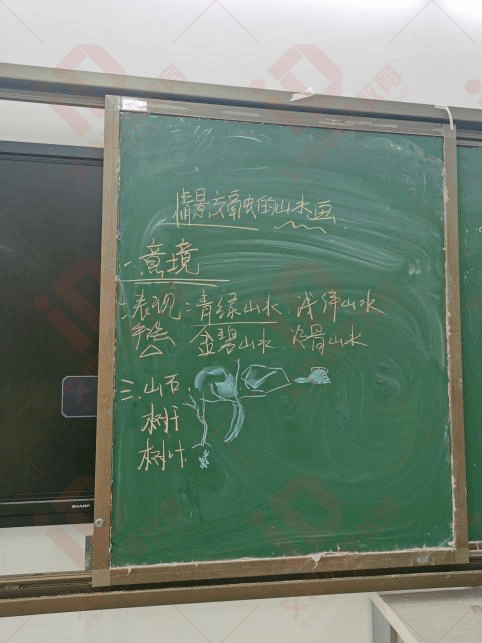 情景交融的山水画
一.意境
二表现:青绿山水、浅绛山水
手法 金碧山水、没骨山水
三.山石、
树干
树叶、
SHARP